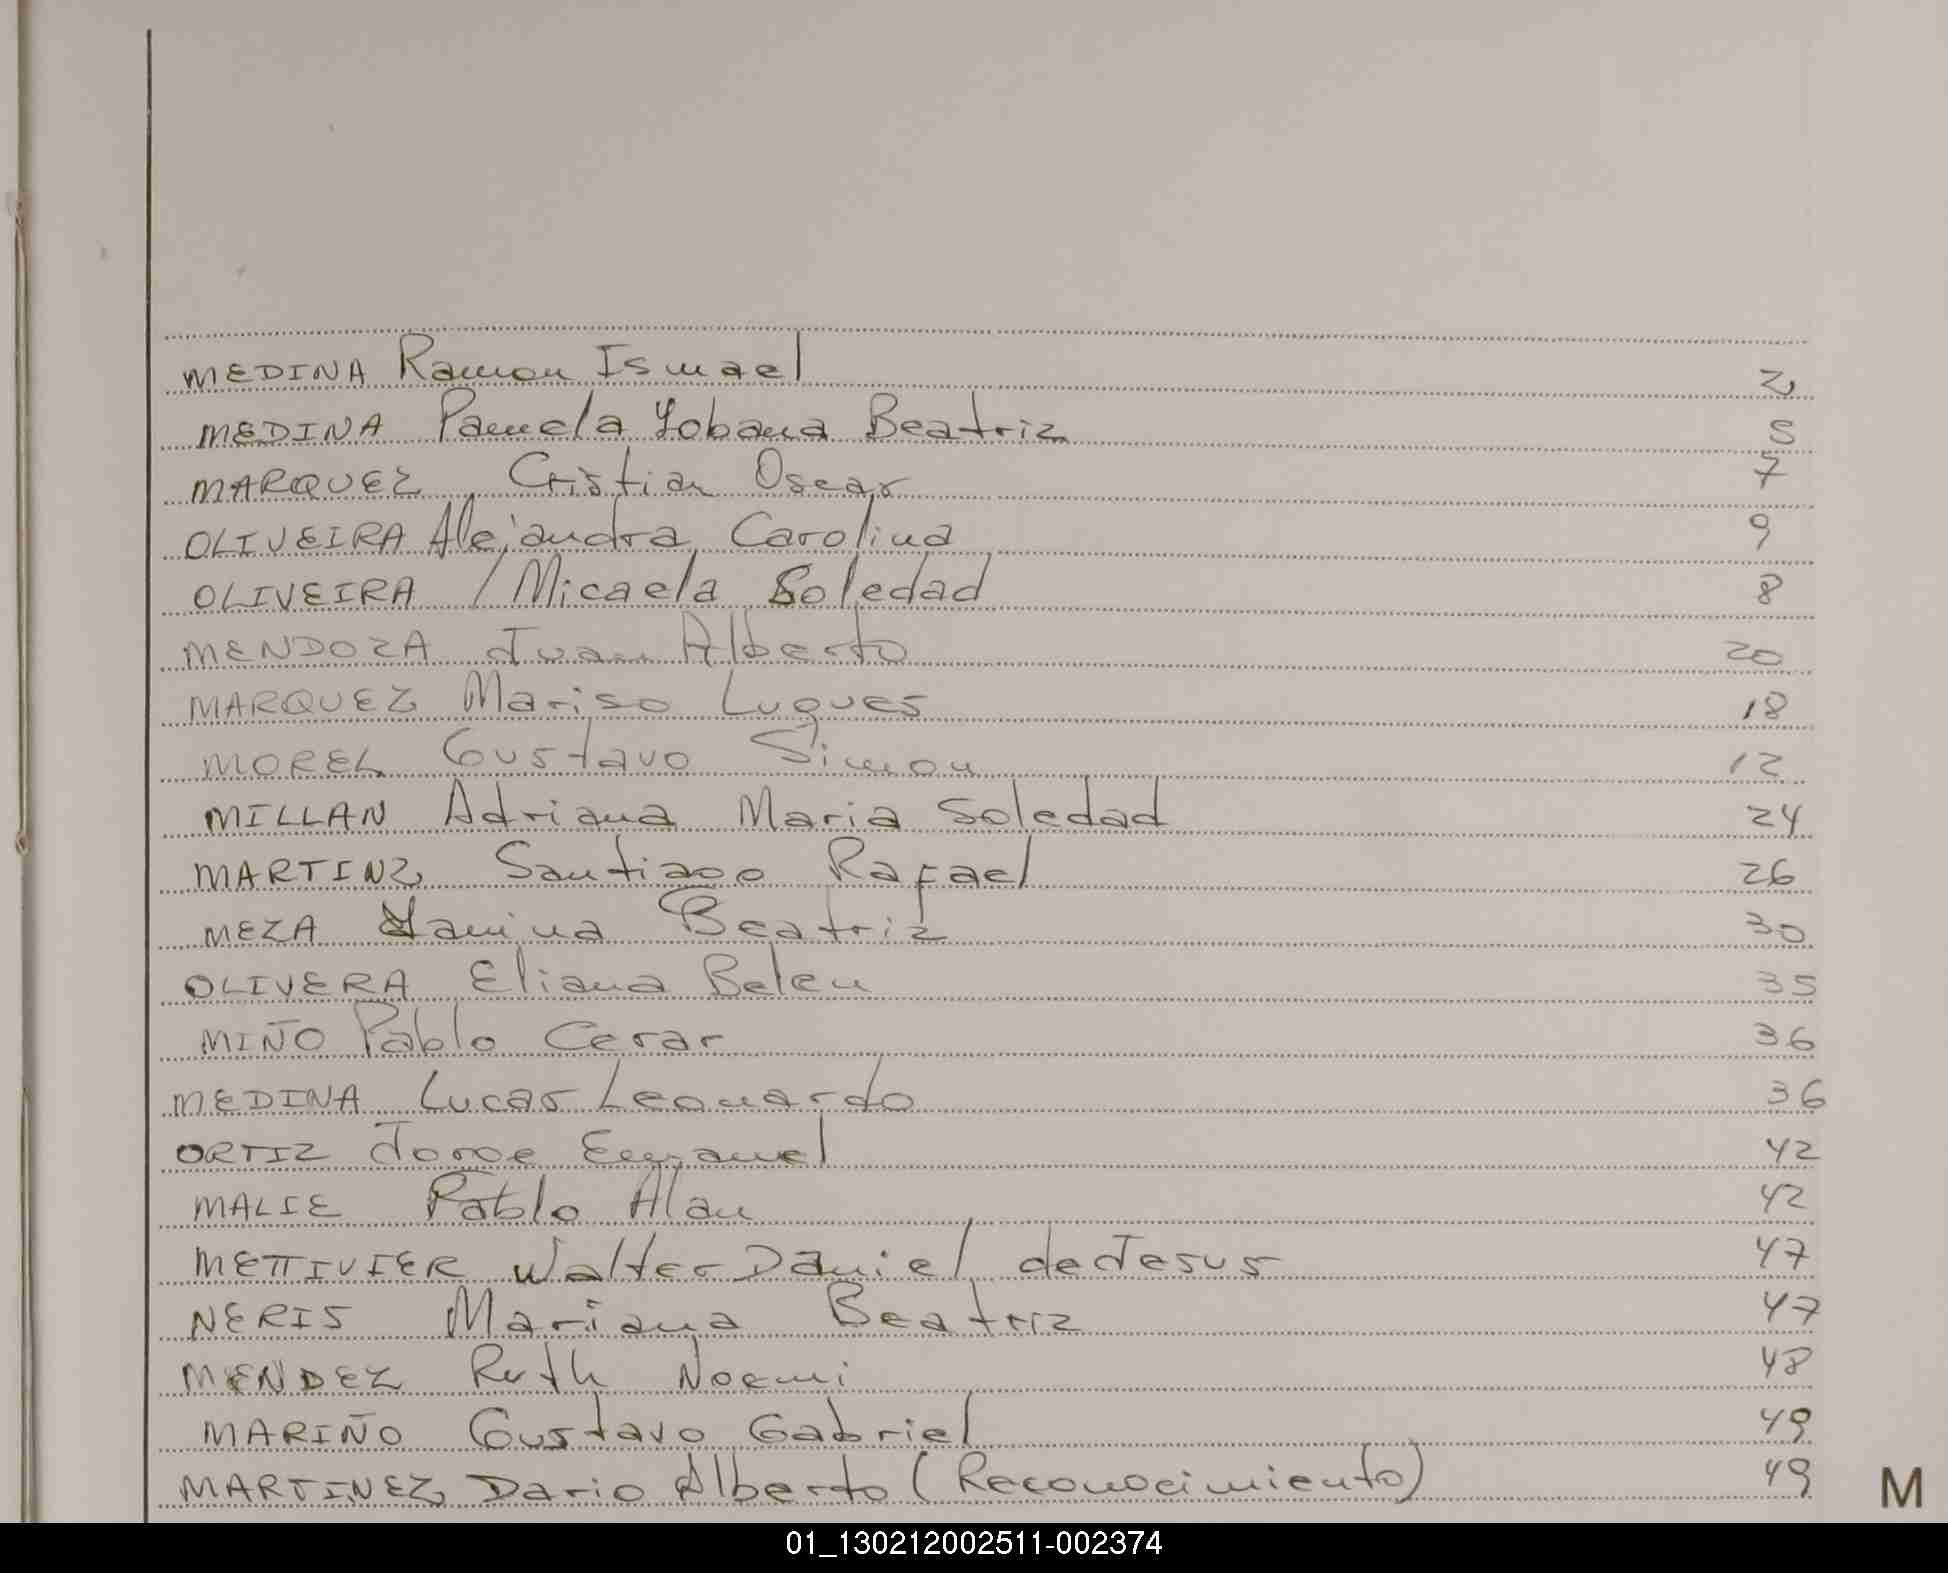 MEDINA Ramon Ismael 2
MEDINA Pamela Yobana Beatriz 5
MARQUEZ Cristian Oscar 7
OLIVEIRA Alejandra Carolina 9
OLIVEIRA / Micaela Soledad 8
MENDOZA Juan Alberto 20
MARQUEZ Mariso Lugues 18
MOREL Gustavo Simon 12
MILLAN Adriana Maria Soledad 24
MARTINZ Santiago Rafael 26
MEZA Yanina Beatriz 30
OLIVERA Eliana Belen 35
MIÑO Pablo Cerar 36
MEDINA Lucas Leonardo 36
ORTIZ Jorge Emanuel 42
MALIE Pablo Alan 42
METTIVIER Walter Daniel de Jesus 47
NERIS Mariana Beatriz 47
MENDEZ Ruth Noemi 48
MARIÑO Gustavo Gabriel 49
MARTINEZ Dario Alberto (Reconocimiento) 49
M
01_130212002511-002374